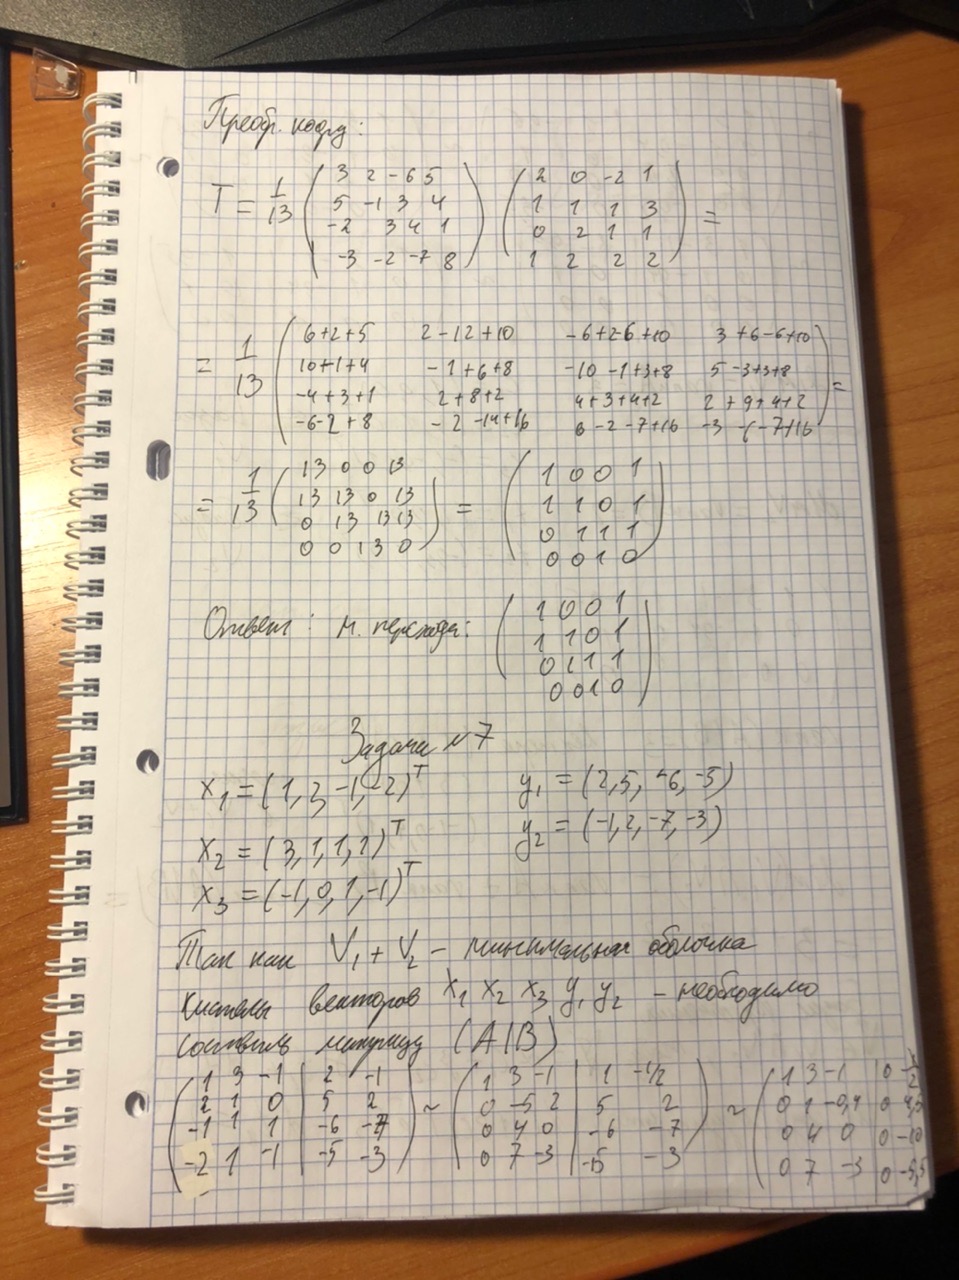 Преобр. коорд:
T = 1/13 (3 2 -6 5; 5 -1 3 4; -2 3 4 1; -3 -2 -7 8) (2 0 -2 1; 1 1 1 3; 0 2 1 1; 1 2 2 2) =
= 1/13 (6+2+5 2-12+10 -6+2-6+10 3+6-6+10; 10+1+4 -1+6+8 -10-1+3+8 5-3+3+8; -4+3+1 2+8+2 4+3+4+2 2+9+4+2; -6-2+8 -2-14+16 6-2-7+16 -3-6-7+16) =
= 1/13 (13 0 0 13; 13 13 0 13; 0 13 13 13; 0 0 13 0) = (1 0 0 1; 1 1 0 1; 0 1 1 1; 0 0 1 0)
Ответ: м. перехода: (1 0 0 1; 1 1 0 1; 0 1 1 1; 0 0 1 0)
Задача №7
x₁ = (1, 2, -1, -2)ᵀ y₁ = (2, 5, -6, -5)
x₂ = (3, 1, 1, 1)ᵀ y₂ = (-1, 2, -7, -3)
x₃ = (-1, 0, 1, -1)ᵀ
Так как V₁ + V₂ - оболочка
системы векторов x₁ x₂ x₃ y₁ y₂ - необходимо
составить матрицу (A|B)
(1 3 -1 | 2 -1; 2 1 0 | 5 2; -1 1 1 | -6 -7; -2 1 -1 | -5 -3) ~ (1 3 -1 | 1 -1/2; 0 -5 2 | 5 2; 0 4 0 | -6 -7; 0 7 -3 | -5 -3) ~ (1 3 -1 | 0; 0 1 -0,4 | 0; 0 4 0 | 0 -10; 0 7 -3 | 0 -5,5